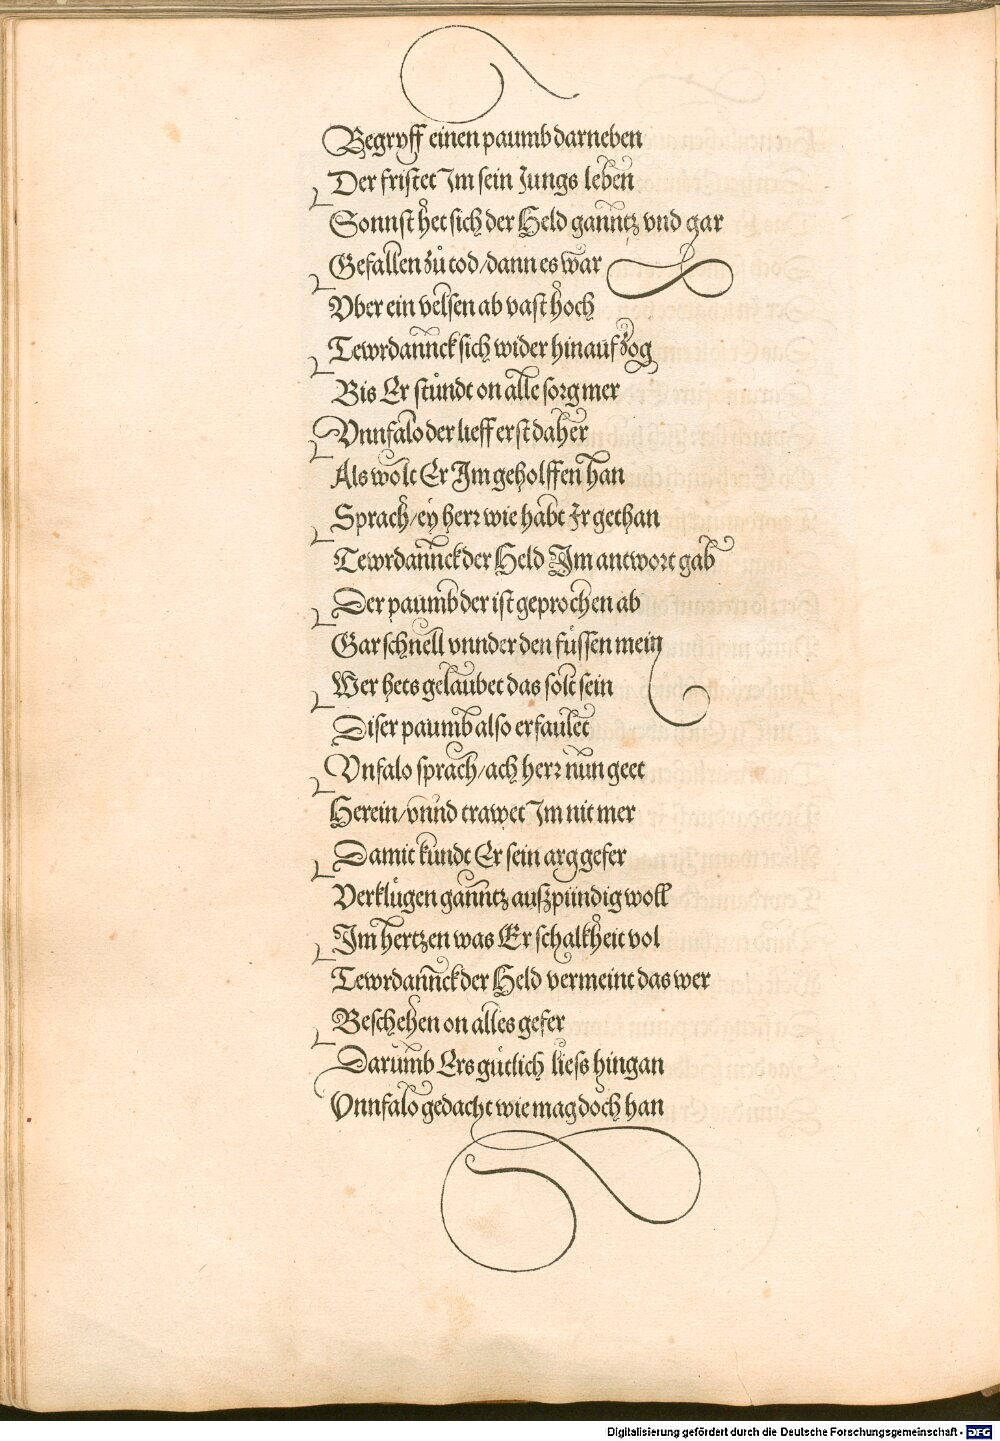 Begryff einen paumb darneben
Der fristet Im sein Jungs leben
Sonnst het sich der Held ganntz vnd gar
Gefallen zů tod/dann es war
Vber ein velsen ab vast hoch
Tewrdannck sich wider hinauf zog
Bis Er stůndt on alle sorg mer
Vnnfalo der lieff erst daher
Als wolt Er Im geholffen han
Sprach/ey herr wie habt Ir gethan
Tewrdannck der Held Im antwort gab
Der paumb der ist geprochen ab
Gar schnell vnnder den füssen mein
Wer hets gelaubet das solt sein
Diser paumb also erfaulet
Vnfalo sprach/ach herr nun geet
Herein/vnnd trawet Im nit mer
Damit kundt Er sein arg gefer
Verklügen ganntz außpündig woll
Im hertzen was Er schalkheit vol
Tewrdannck der Held vermeint das wer
Beschehen on alles gefer
Darumb Ers gütlich liess hingan
Vnnfalo gedacht wie mag doch han
Digitalisierung gefördert durch die Deutsche Forschungsgemeinschaft - DFG